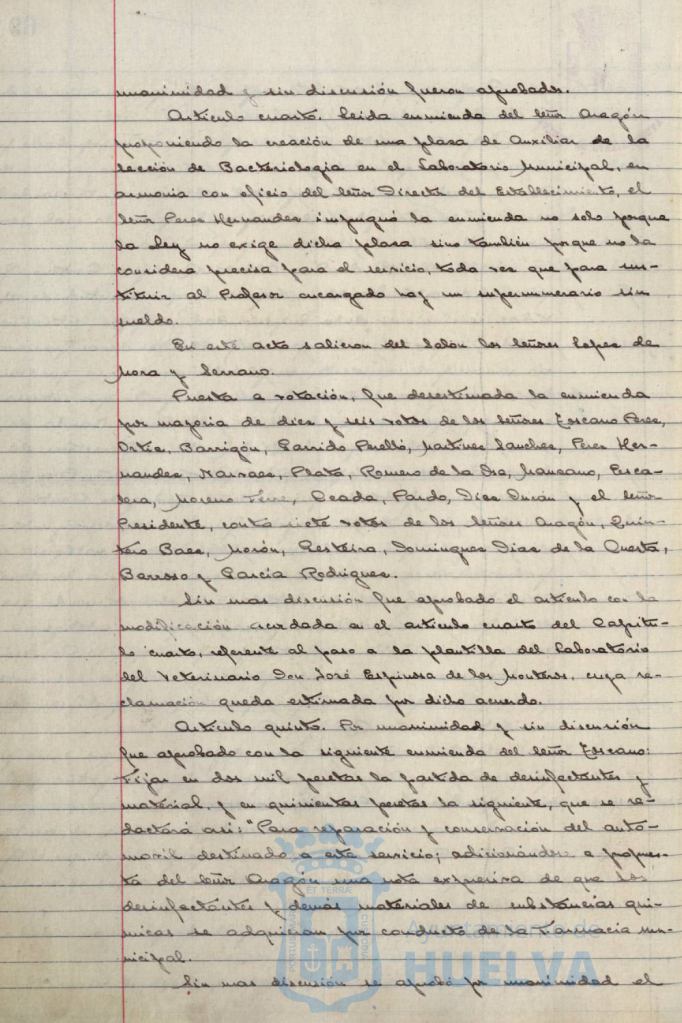 unanimidad y sin discusión fueron aprobados.
Artículo cuarto. Leida enmienda del Señor Aragón
proponiendo la creación de una plaza de Auxiliar de la
sección de Bacteriologia en el Laboratorio Municipal, en
armonia con oficio del Señor Director del Establecimiento, el
Señor Perez Hernandez impugnó la enmienda no solo porque
la Ley no exige dicha plaza sino también porque no la
considera precisa para el servicio, toda vez que para sus-
tituir al Profesor encargado hay un supernumerario sin
sueldo.
En este acto salieron del Salón los Señores Lopez de
Mora y Serrano.
Puesta a votación, fue desestimada la enmienda
por mayoria de diez y seis votos de los Señores Toscano Perez,
Ortiz, Barrigón, Garrido Perelló, Martinez Sanchez, Perez Her-
nandez, Narvaez, Plata, Romero de la Osa, Manzano, Esca-
lera, Moreno, Pardo, Diaz Durán y el Señor
Presidente, contra siete votos de los Señores Aragón, Quin-
tero Baez, Morón, Gesteira, Dominguez Diaz de la Cuesta,
Barroso y García Rodriguez.
Sin mas discusión fue aprobado el artículo con la
modificación acordada en el artículo cuarto del Capitu-
lo cuarto, referente al paso a la plantilla del Laboratorio
del Veterinario Don José Espinosa de los Monteros, cuya re-
clamación queda estimada por dicho acuerdo.
Artículo quinto. Por unanimidad y sin discusión
fue aprobado con la siguiente enmienda del Señor Toscano:
Fijar en dos mil pesetas la partida de desinfectantes y
material, y en quinientas pesetas la siguiente, que se re-
dactará asi: "Para reparación y conservación del auto-
movil destinado a este servicio; adicionándose a propues-
ta del Señor Aragón una nota expresiva de que los
desinfectantes y demás materiales de substancias quí-
micas se adquieran por conducto de la Farmacia mu-
nicipal.
Sin mas discusión se aprobó por unanimidad el
Ayuntamiento de
HUELVA